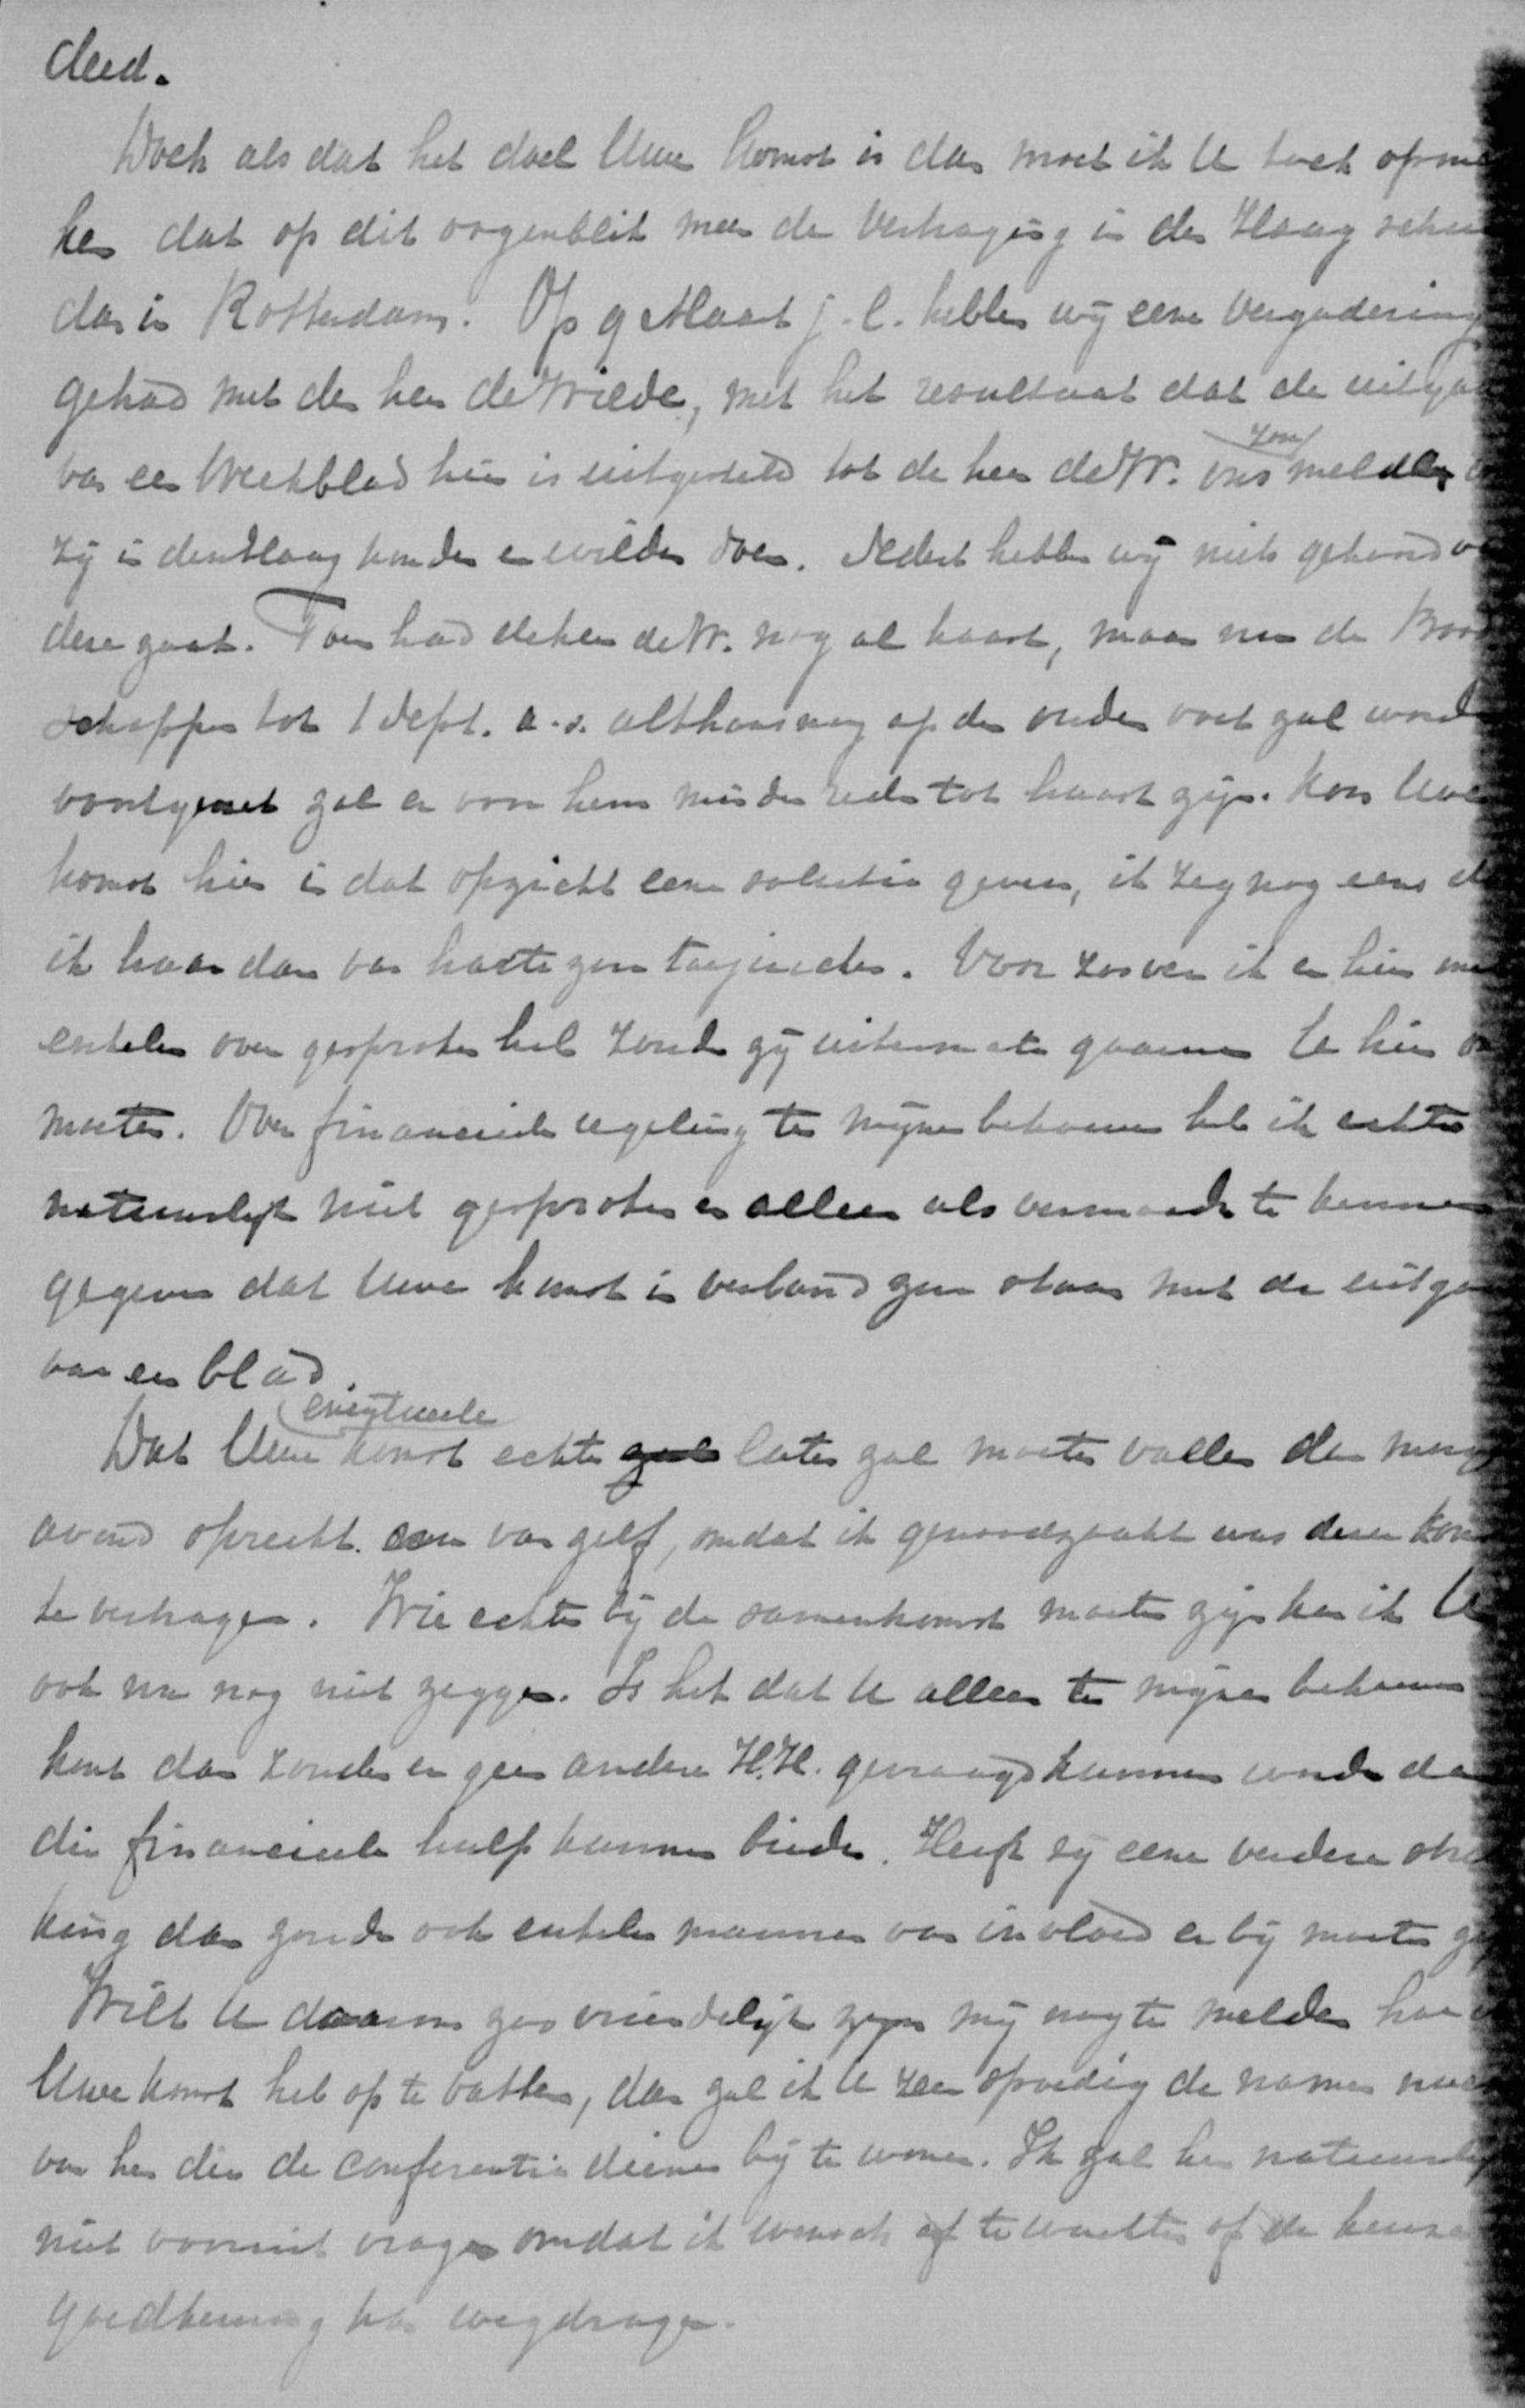 deed.
Doch als dat het doel Uwer komst is dan moet ik U toch opmer
ken dat op dit oogenblik meer de vertraging in den Haag schu
dan in Rotterdam. Op 9 Maart j.l. hebben wij eene vergadering
gehad met den heer de Wilde, met het resultaat dat de uitgav
van een Weekblad hier is uitgesteld tot de heer de W. ons zou melden
zij in den Haag konden en wilden doen. Sedert hebben wij niets gehoord
deze zaak. Toen had de heer de W. nog al haast, maar nu de Bood
schapper tot 1 Sept. a.s. althans nog op den ouden voet zal word
voortgezet zal er voor hem minder reden tot haast zijn. Kon Uwe
komst hier in dat opzicht eene solutie geven, ik zeg nog eens d
ik haar dan van harte zou toejuichen. Voor zoover ik er hier met
enkelen over gesproken heb zouden zij uitermate gaarne U hier ont
moeten. Over financieele regeling te mijnen behoeve heb ik echter
natuurlijk niet gesproken en alleen als vermoeden te kennen
gegeven dat Uwe komst in verband zou staan met de uitgav
van een blad.
Dat Uwe eventueele komst echter later zal moeten vallen dan
avond spreekt van zelf, omdat ik genoodzaakt was deze
te vertragen. Wie echter bij de samenkomst moeten zijn kan ik U
ook nu nog niet zeggen. Is het dat U alleen te mijnen behoeve
komt dan zouden er geen andere H.H. gevraagd kunnen worden dan
die financieele hulp kunnen bieden. Heeft zij eene verdere strek
king dan zouden ook enkele mannen van invloed er bij moeten zij
Wilt U daarom zoo vriendelijk zijn mij nog te melden hoe
Uwe komst heb op te vatten, dan zal ik U zeer spoedig de namen
van hen die de conferentie dienen bij te wonen. Ik zal hen natuurlij
niet vooruit vragen omdat ik wensch af te wachten of de keuze
goedkeuring kan wegdragen.